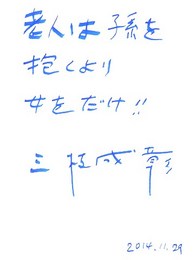 老人は孫を
抱くより
女をだけ!!
三枝成彰
2014.11.29